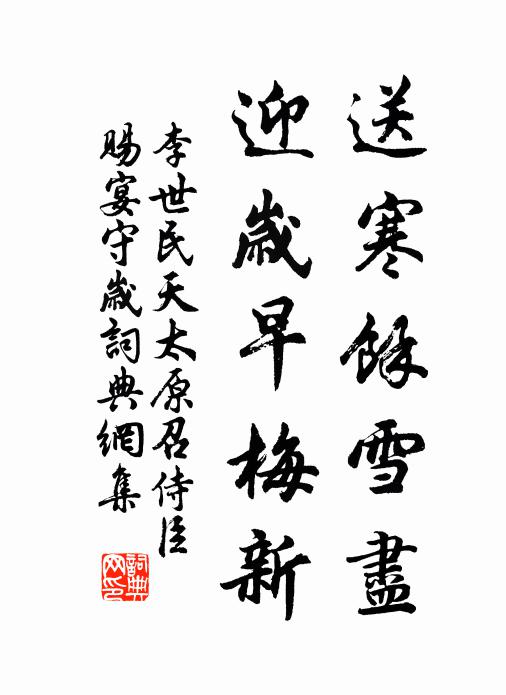 送寒餘雪盡
迎歲早梅新
李世民天太原召侍臣
賜宴守歲詞典網集
詞典
网印